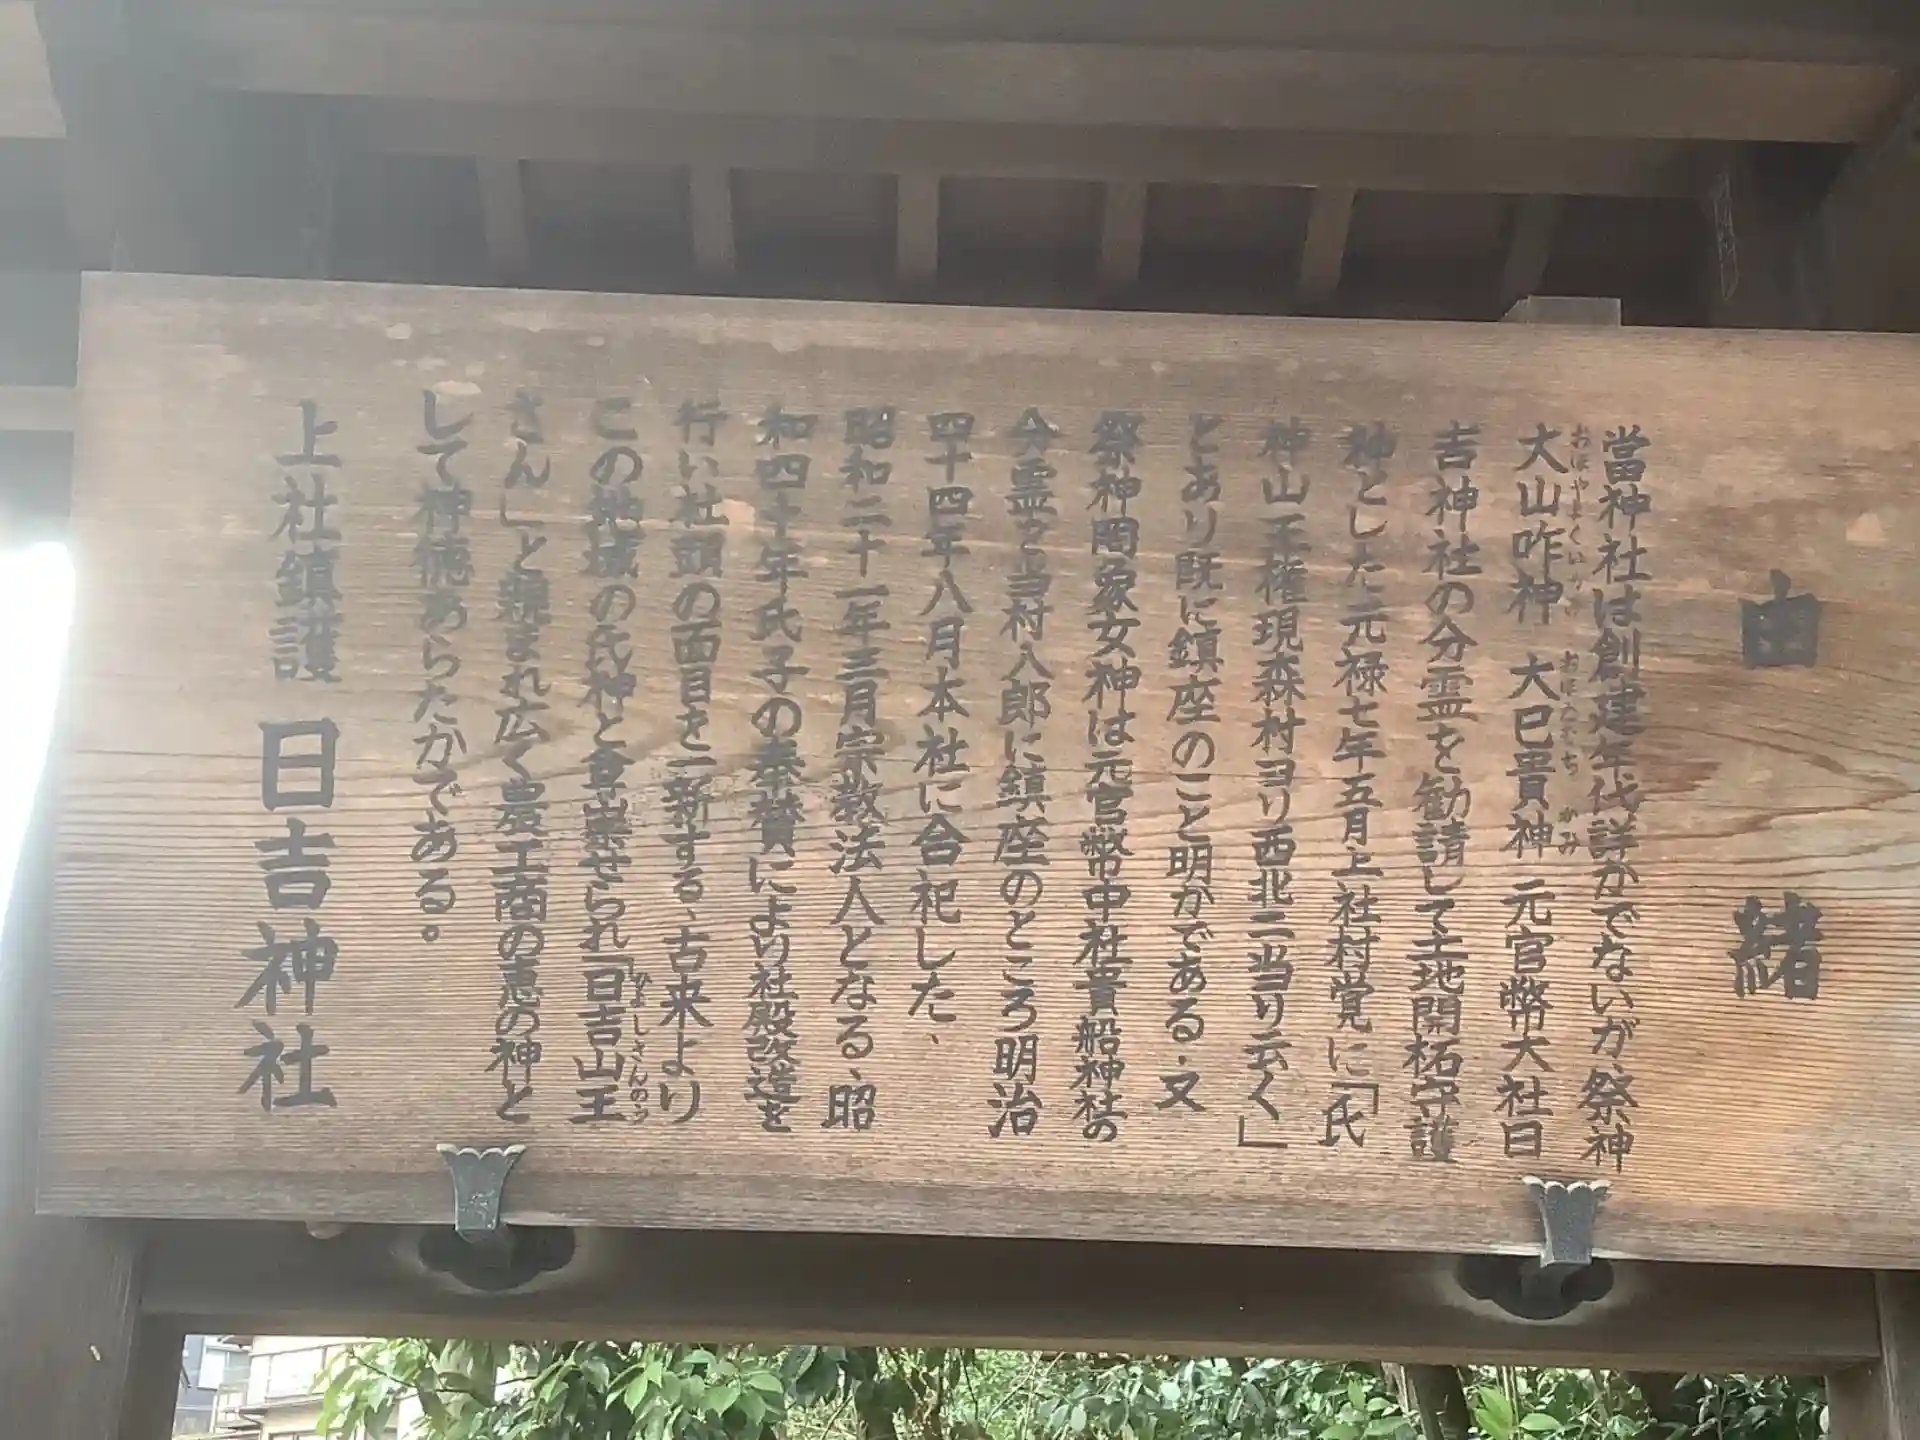 由緒
當神社は創建年代詳かでないが、祭神
大山咋神 大巳貴神 元官幣大社日
おほやまくいかみ おほなむち かみ
吉神社の分霊を勧請して土地開柘守護
神とした元禄七年五月上社村覚に「氏
神山王権現森村ヨリ西北ニ当り云く」
とあり既に鎮座のこと明かである。又
祭神罔象女神は元官幣中社貴船神社の
分霊を当村八郎に鎮座のところ明治
四十四年八月本社に合祀した、
昭和二十一年三月宗教法人となる、昭
和四十年氏子の奉賛により社殿改造を
行い社頭の面目を一新する、古来より
この地域の氏神と尊崇せられ「日吉山王
ひよしさんのう
さん」と親まれ広く農工商の恵の神と
して神徳あらたかである。
上社鎮護 日吉神社